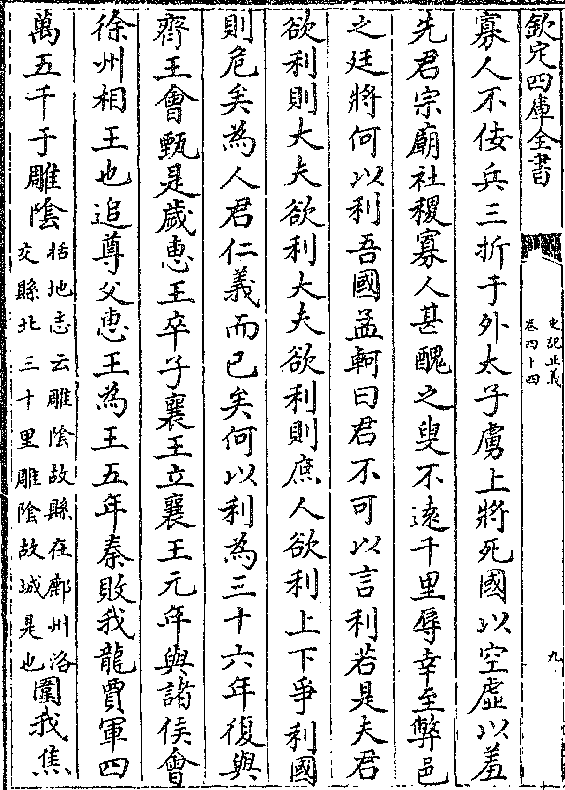 欽定四庫全書
史記正義
卷四十四
九
寡人不佞兵三折于外太子虜上將死國以空虛以羞
先君宗廟社稷寡人甚醜之叟不遠千里辱幸至弊邑
之廷將何以利吾國孟軻曰君不可以言利若是夫君
欲利則大夫欲利大夫欲利則庶人欲利上下爭利國
則危矣為人君仁義而已矣何以利為三十六年復與
齊王會甄是歲惠王卒子襄王立襄王元年與諸侯會
徐州相王也追尊父惠王為王五年秦敗我龍賈軍四
萬五千于雕陰括地志云雕陰故縣在鄜州洛交縣北三十里雕陰故城是也圍我焦